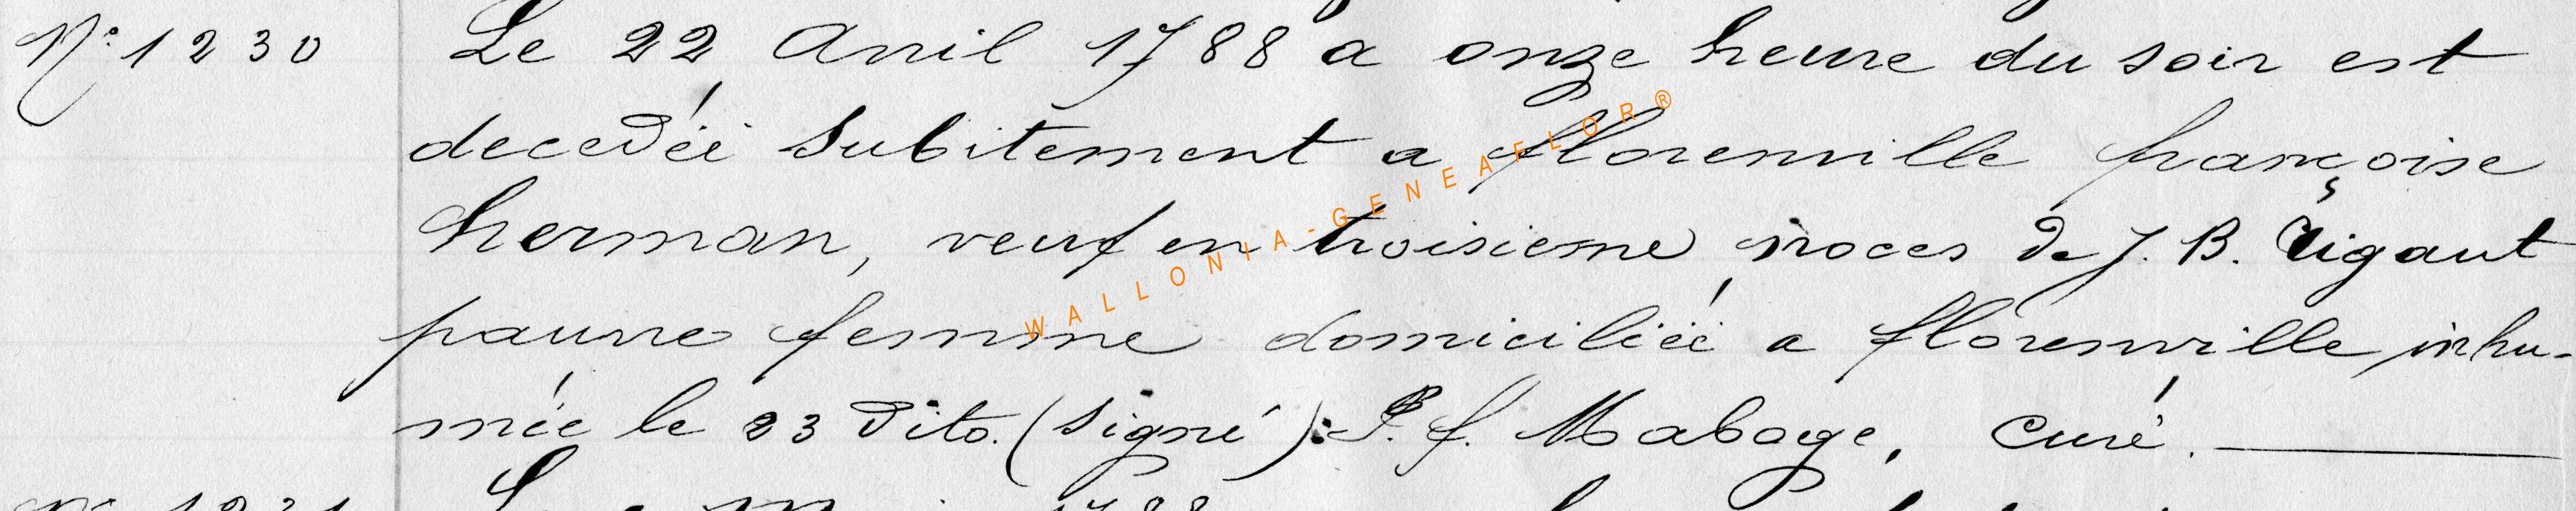 N° 1230 Le 22 Avril 1788 a onze heure du soir est
decedéé subitement a florenville françoise
herman, veuf en troisieme noces de J. B. Rigaut
pauvre femme domiciliéé a florenville inhu-
mée le 23 dito. (signé): P. f. Maboge, curé.
WALLONIA-GENEAFLOR®